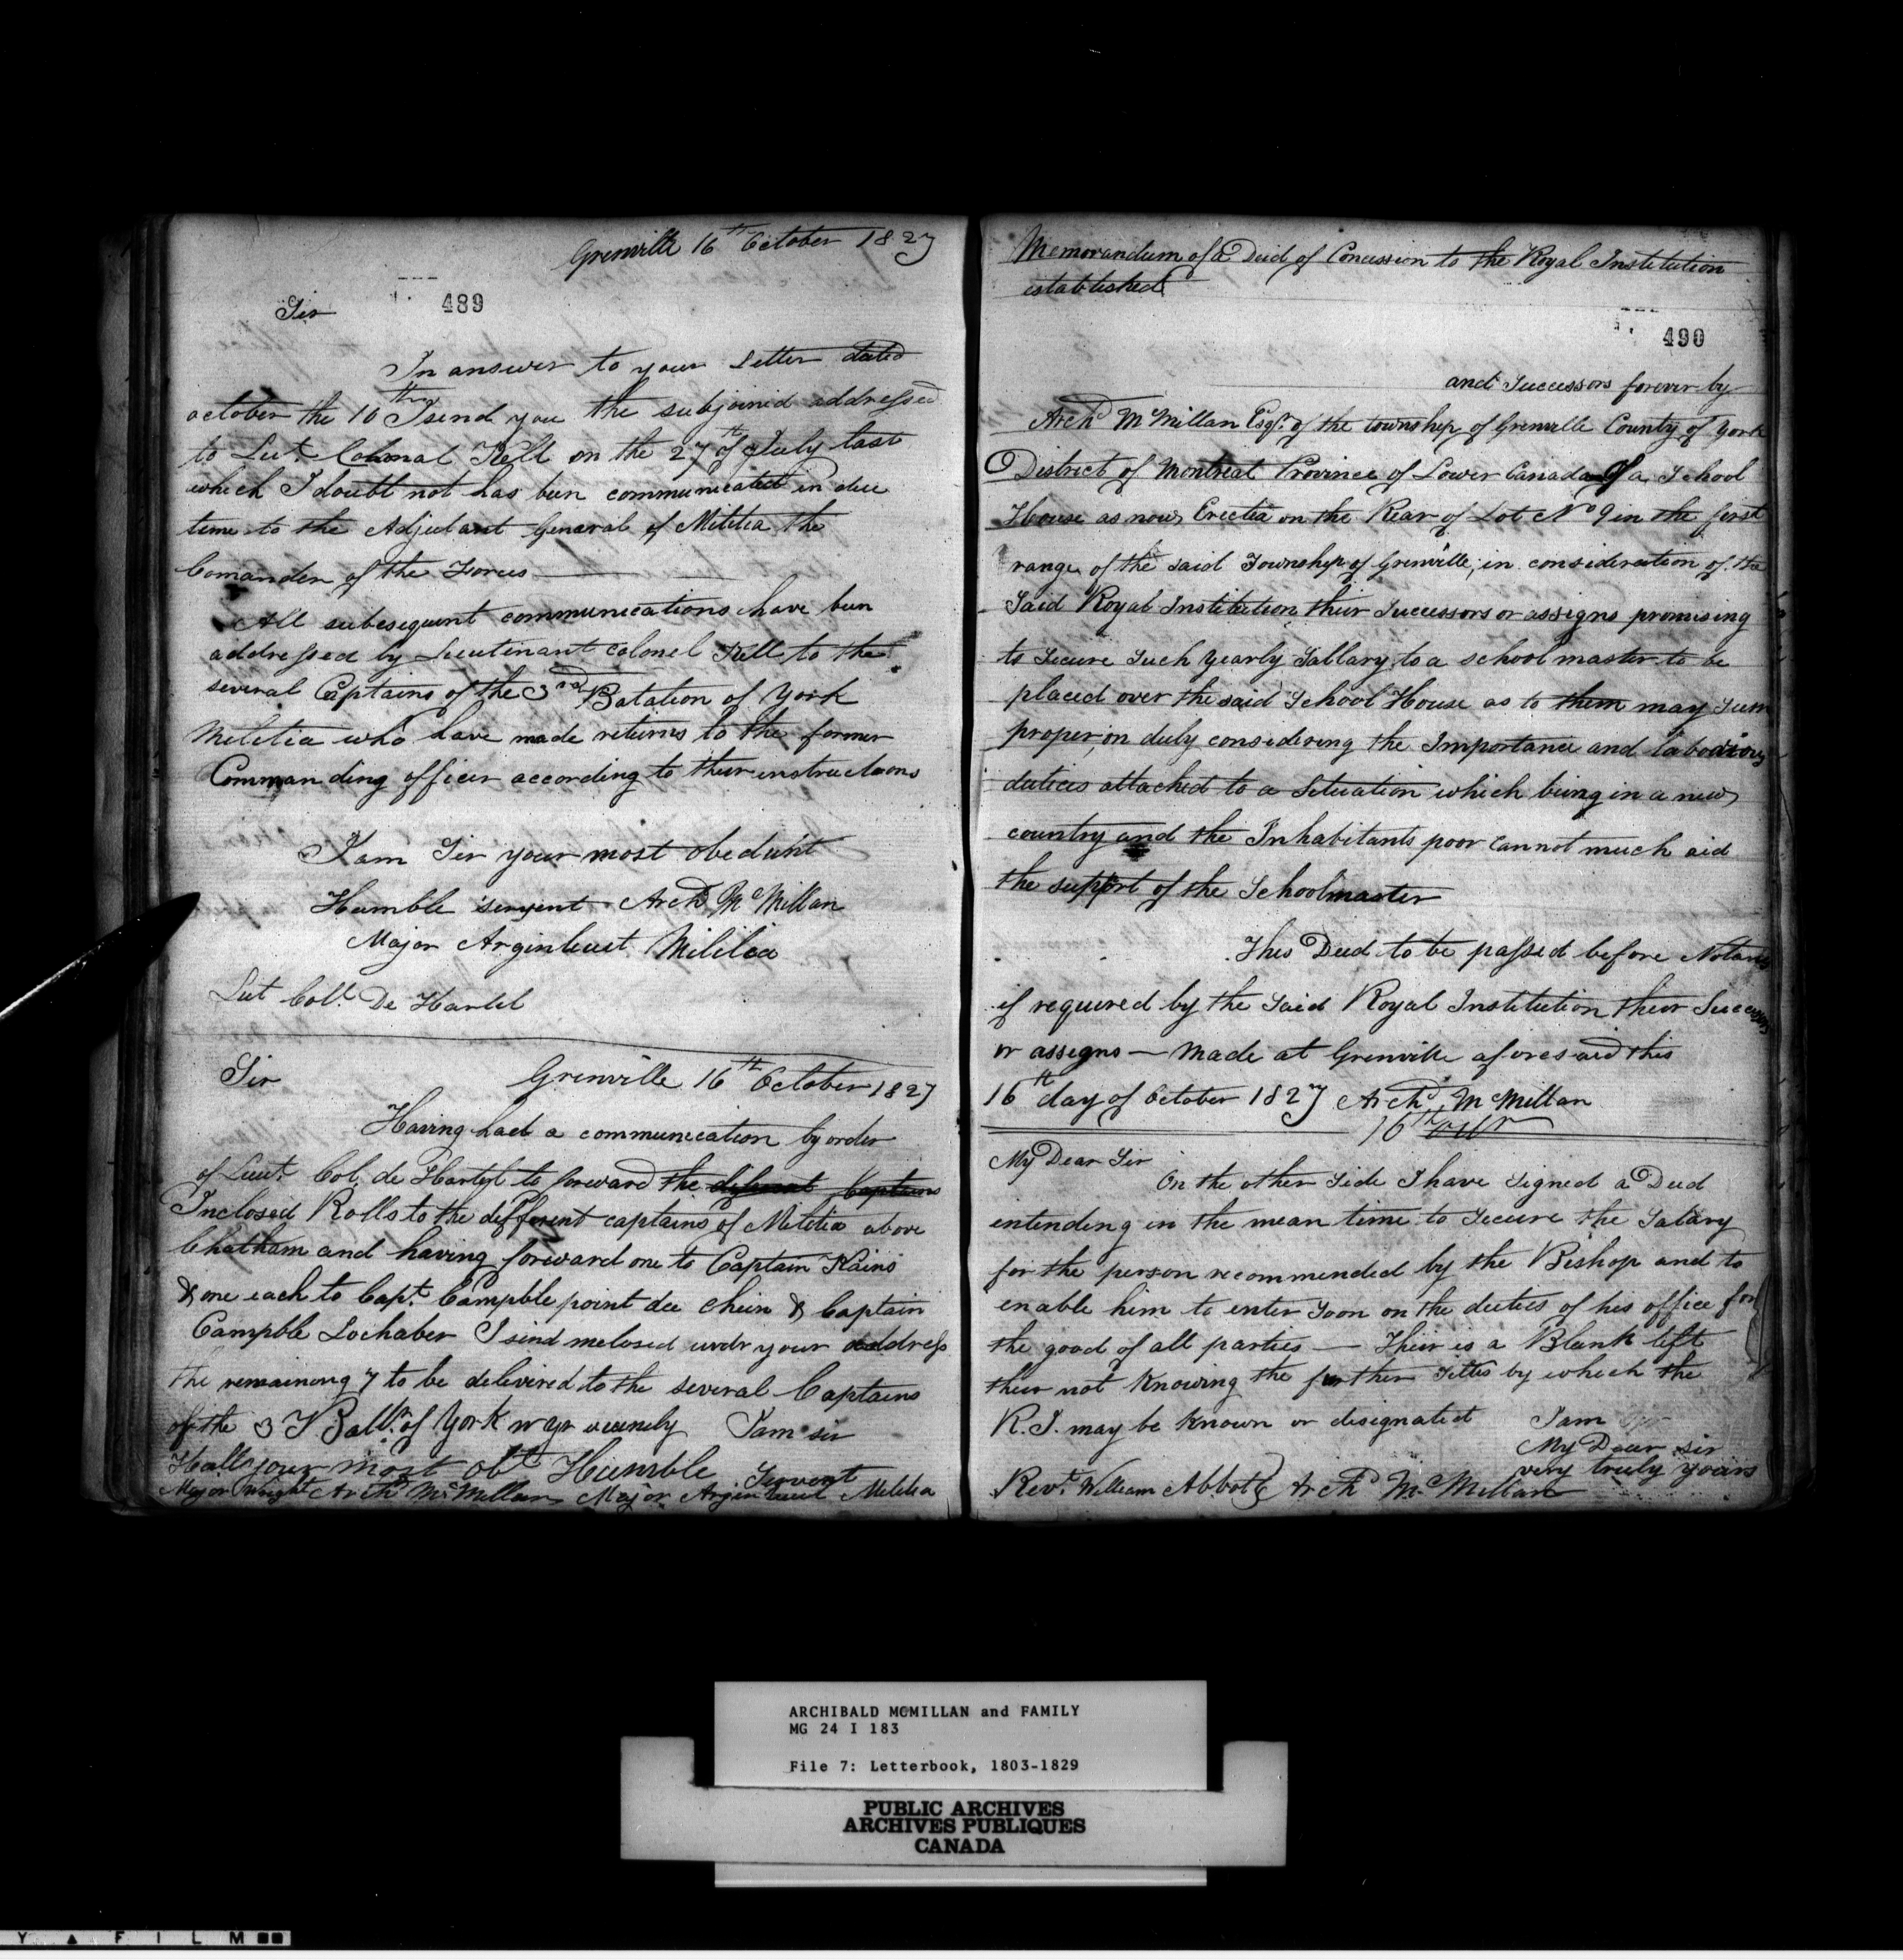 Grenville 16th October 1827
489
Sir
In answer to your Letter dated
october the 10th I send you the subjoined addressed
to Lut. Colonal Kell on the 27th of July last
which I doubt not has been communicated in due
time to the Adjutant General of Militia the
Comander of the Forces
All subesequent communications have been
addressed by Lieutinant colonel Kell to the
several Captains of the 3rd Batation of York
Melitia who have made returns to the former
Commanding officer according to their instructions
I am Sir your most obedient
Humble servent Archd McMillan
Major Arginteuit Militia
Lut Coll. De Hartel
Sir Grenville 16th October 1827
Having had a communication by order
of Lieut. Col. de Hartel to forward the diferent Captains
Inclosed Rolls to the different captains of Melitia above
Chatham and having forward one to Captain Kains
& one each to Capt. Campble point du Chein & Captain
Campble Lochaber I send inclosed undr your address
the remainong 7 to be delivered to the several Captains
of the 3d Battn. of York in yr
I am sir
Hull your most obt Humble Servent
Major Wright Archd McMillan Major Arginteuit Melitia
Memorandum of a Deed of Concession to the Royal Institution
established
490
and Successors forever by
Archd McMillan Esqr. of the township of Grenville County of York
District of Montreal Province of Lower Canada Of a School
House as now Erected on the Rear of Lot No 9 in the first
range of the said Township of Grenville; in consideration of the
Said Royal Institution their Successors or assigns promising
to Secure Such Yearly Sallary to a school master to be
placed over the said School House as to them may Seem
proper, on duly considering the Importance and laborious
duties attached to a Situation which being in a new
country and the Inhabitants poor cannot much aid
the support of the Schoolmaster
This Deed to be passed before Notaries
if required by the Said Royal Institution their Successors
or assigns — Made at Grenville aforesaid this
16th day of October 1827 Archd McMillan
16th Octr
My Dear Sir
On the other Side I have Signed a Deed
entending in the mean time to Secure the Salary
for the person recommended by the Bishop and to
enable him to enter Soon on the duties of his office for
the good of all parties — Their is a Blank left
their not Knowing the further Titles by which the
R. I. may be known or designated I am
My Dear sir
very truly yours
Revd. William Abbott Archd McMillan
ARCHIBALD MCMILLAN and FAMILY
MG 24 I 183
File 7: Letterbook, 1803-1829
PUBLIC ARCHIVES
ARCHIVES PUBLIQUES
CANADA
Y ▲ F I L M